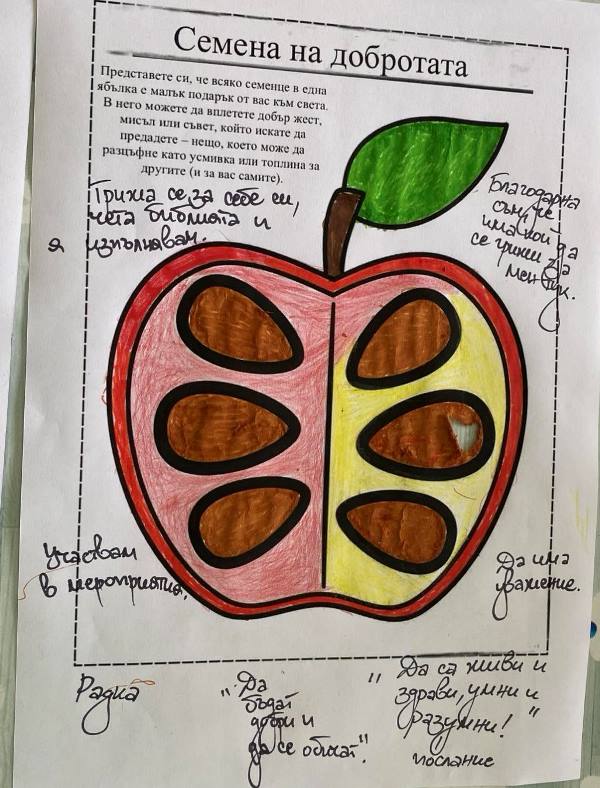 Семена на добротата
Представете си, че всяко семенце в една
ябълка е малък подарък от вас към света.
В него можете да вплетете добър жест,
мисъл или съвет, който искате да
предадете – нещо, което може да
разцъфне като усмивка или топлина за
другите (и за вас самите).
Грижа се за себе си,
чета библията и
я изпълнявам.
Благодарна
съм, че
има кой да
се грижи за
мен тук.
Участвам
в мероприятия.
Да има
уважение.
Радка
"Да
бъдат
добри и
да се обичат".
"Да са живи и
здрави, умни и
разумни!"
послание